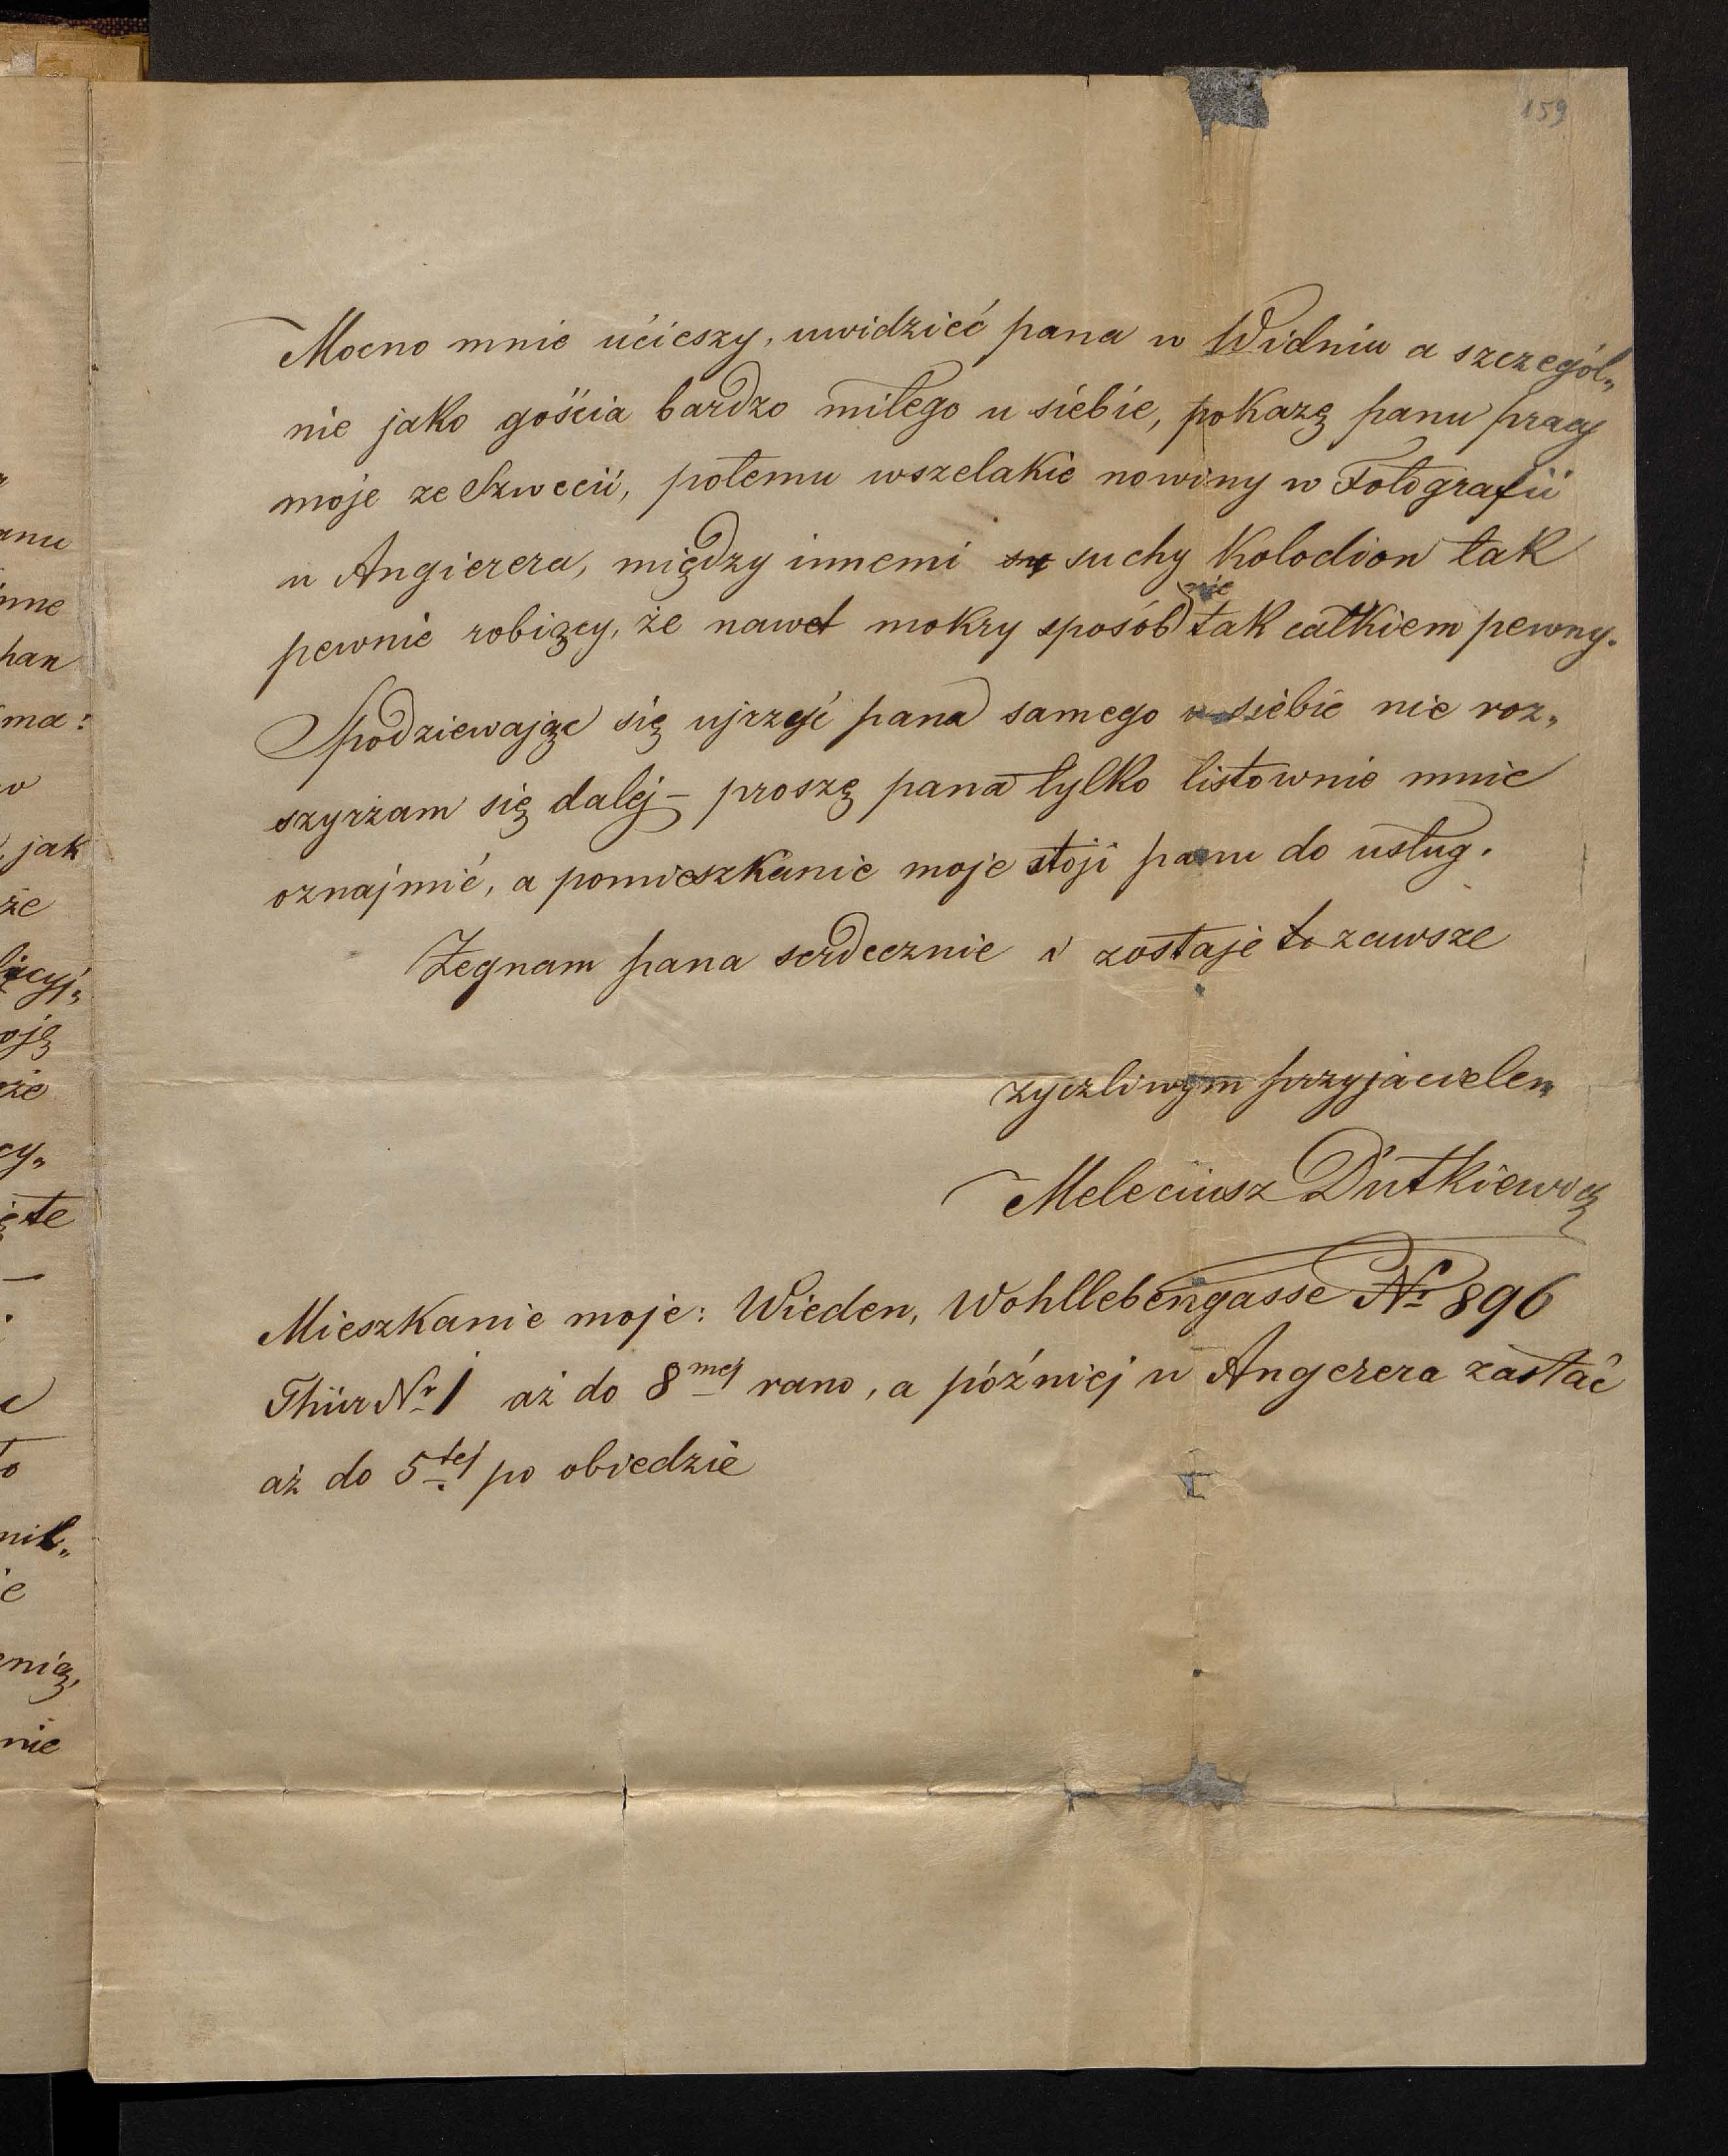 159
Mocno mnie ućieszy, uwidzieć pana w Widniu a szczegól„
nie jako gościa bardzo miłego u siebie, pokazę panu pracy
moje ze Szwecii, potemu wszelakie nowiny w Fotografii
u Angierera, między innemi sy suchy Kolodion tak
pewnie robiący, że nawet mokry sposób nie tak całkiem pewny.
Spodziewając się ujrzeć pana samego u siebie nie roz„
szyrzam się dalej – proszę pana tylko listownie mnie
oznajmić, a pomieszkanie moje stoji panu do usług.
Żegnam pana serdecznie i zostaje to zawsze
życzliwym przyjacielem
Meleciusz Dutkiewicz
Mieszkanie moje: Wieden, Wohllebengasse Nr 896
Thür Nr 1 aż do 8mej rano, a później u Angerera zastać
aż do 5tej po obiedzie
anu
nne
han
ma:
jak
że
oję
że
cy„
te
enią,
nie